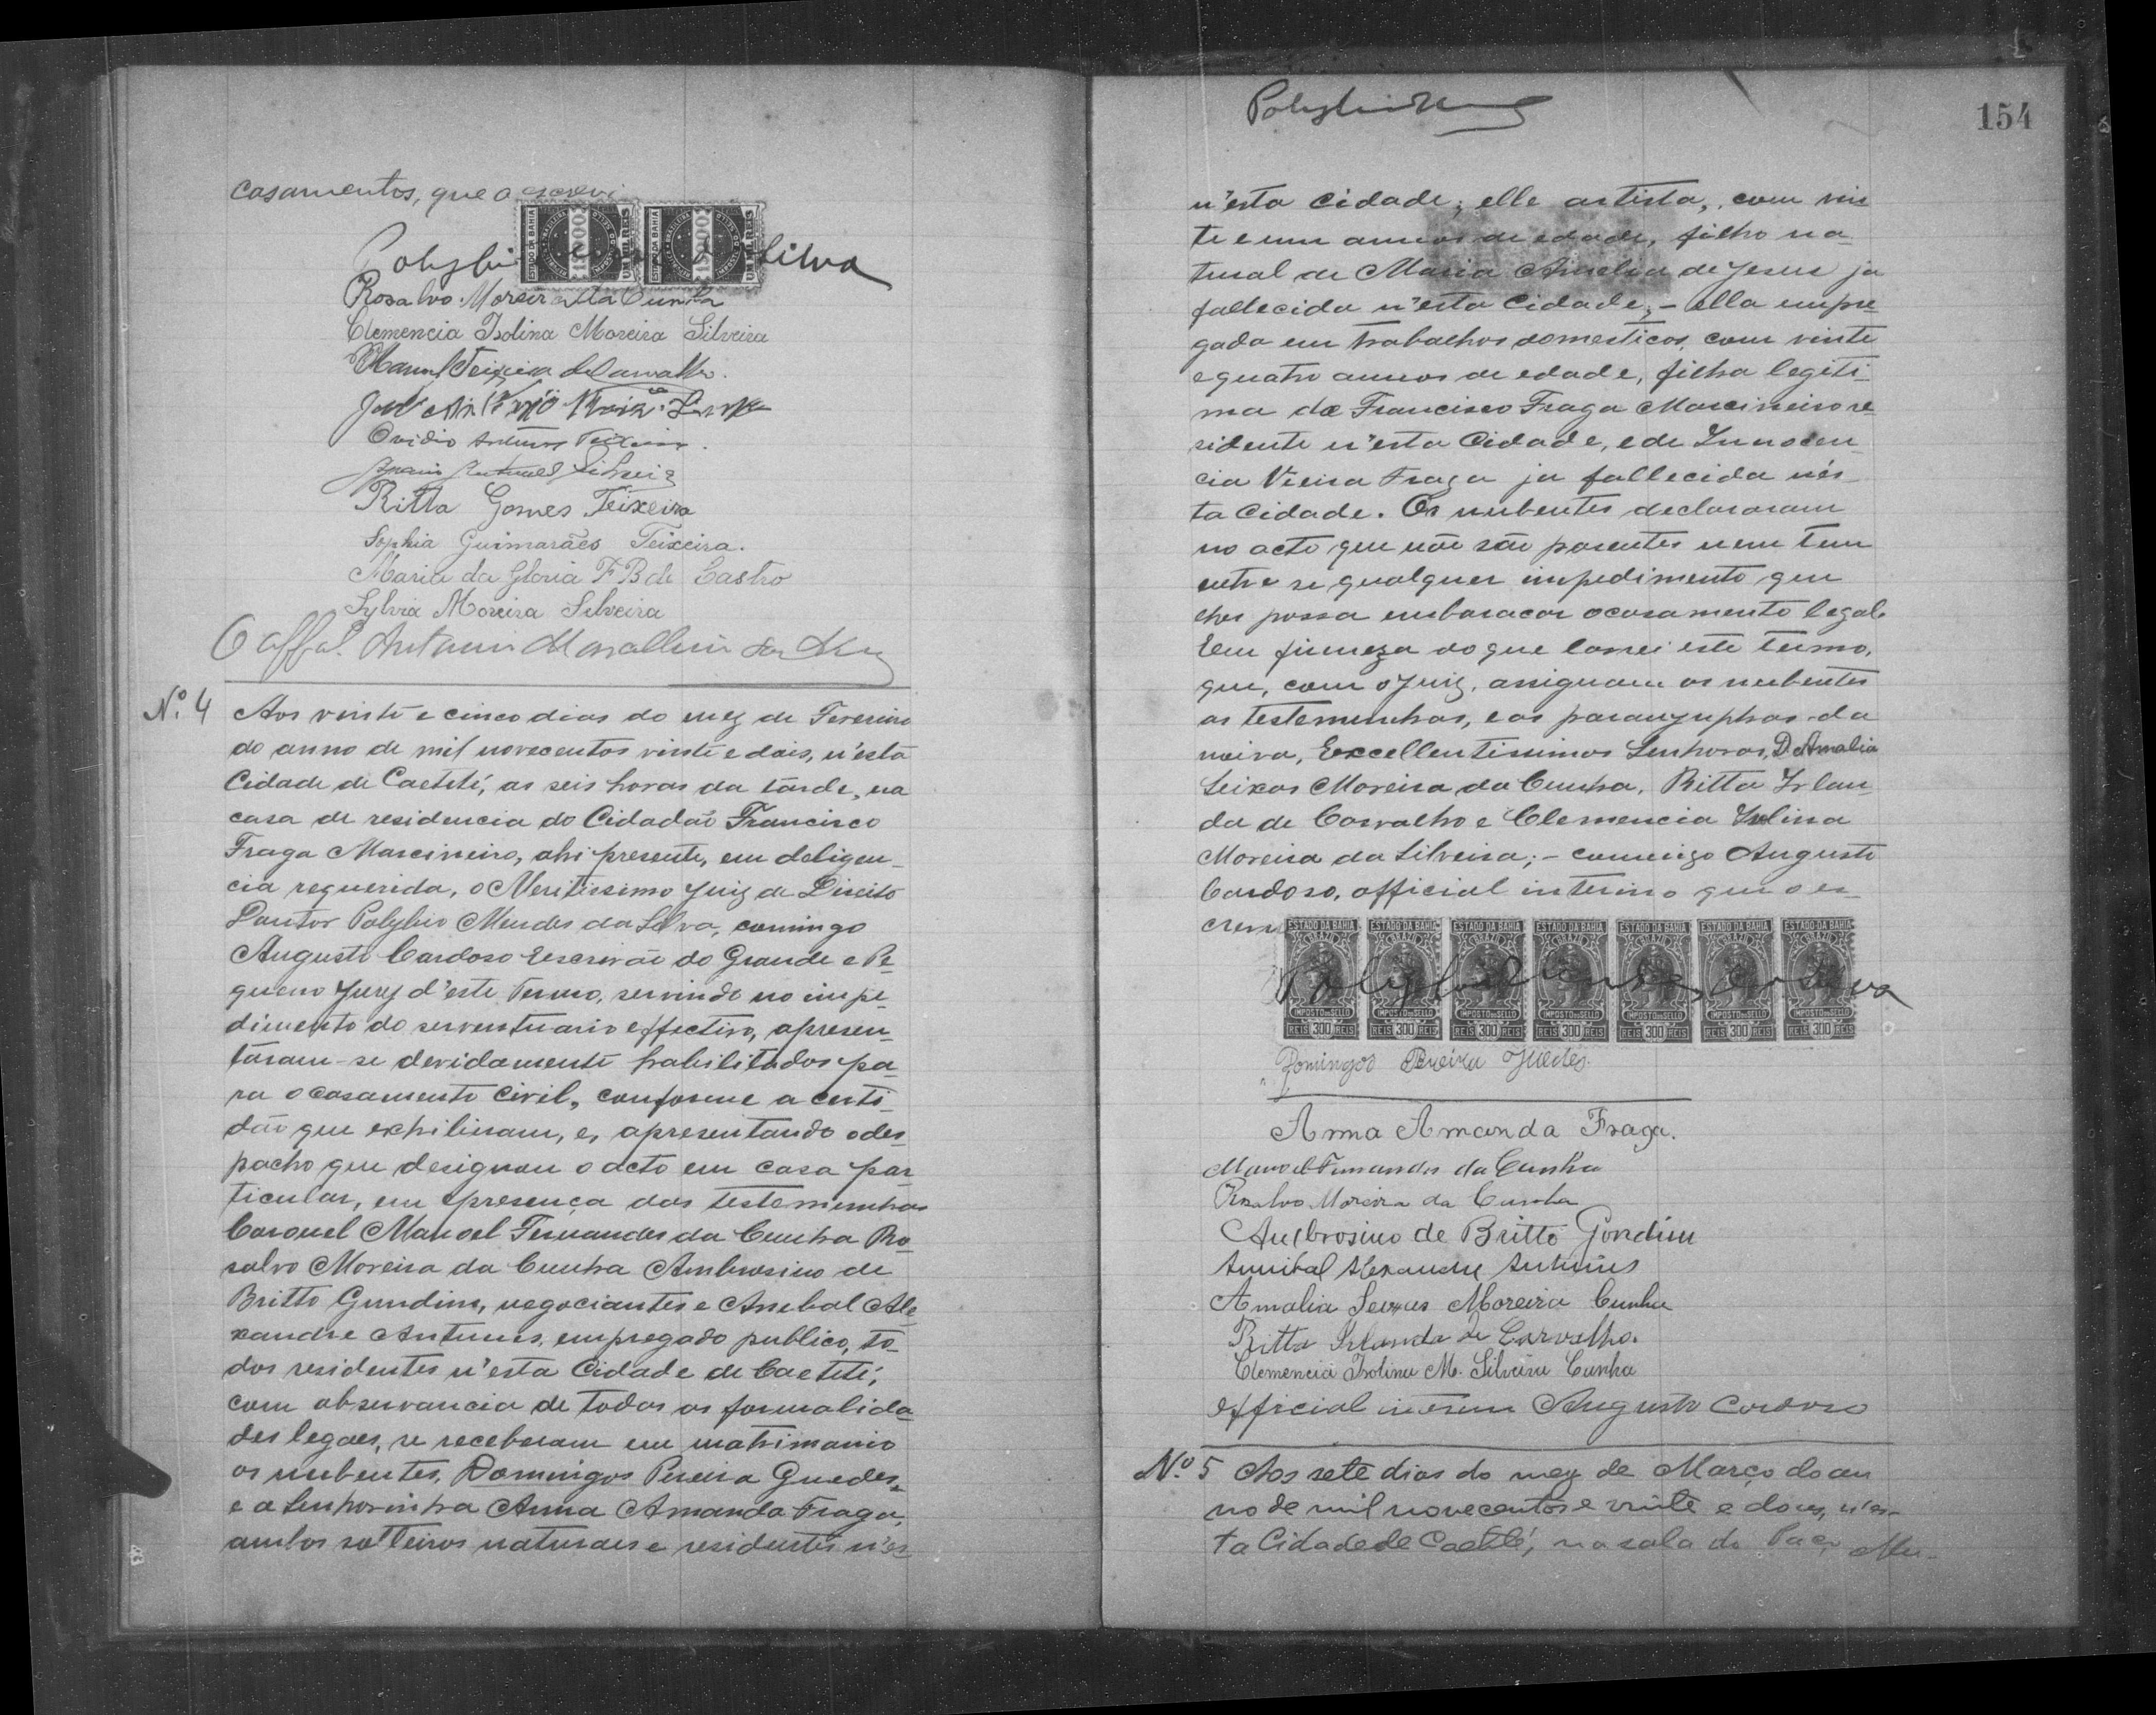 casamentos, que o escrevi
ESTADO DA BAHIA
1$000
UM MIL REIS
ESTADO DA BAHIA
1$000
UM MIL REIS
Polybio Silva
Rosalvo Moreira da Cunha
Clemencia Isolina Moreira Silveira
Manuel Teixeira de Carvalho.
Ovidio Antunes Teixeira.
Ritta Gomes Teixeira
Sophia Guimarães Teixeira.
Maria da Gloria F B de Castro
Sylvia Moreira Silveira
O offal. Antonio
Nº. 4 Aos vinte e cinco dias do mez de Fevereiro
do anno de mil novecentos vinte e dois, n'esta
Cidade de Caeteté, as seis horas da tarde, na
casa de residencia do Cidadão Francisco
Fraga Marcineiro, ahi presente, em deligen-
cia requerida, o Meritissimo Juiz de Direito
Doutor Polybio Mendes da Silva, comingo
Augusto Cardoso Escrivão do Grande e Pe-
queno Jury d'este Termo, servindo no impe-
dimento do serventuario effectivo, apresen-
taram-se devidamente habilitados pa-
ra o casamento civil, conforme a certi-
dão que exhibiram, e, apresentando o des-
pacho que designou o acto em casa par-
ticular, em presença das testemunhas
Coronel Manoel Fernandes da Cunha Ro-
salvo Moreira da Cunha Ambrosino de
Britto Gundim, negociantes e Anebal Ale-
xandre Antunes, empregado publico, to-
dos residentes n'esta Cidade de Caeteté,
com observancia de todas as formalida-
des legaes, se receberam em matrimonio
os nubentes, Domingos Pereira Guedes,
e a Senhorinha Anna Amanda Fraga,
ambos solteiros naturaes e residentes n'es-
154
n'esta cidade; elle artista, com vin
te e um annos de edade, filho na-
tural de Maria Amelia de Jesus ja
fallecida n'esta Cidade; - ella empre-
gada em trabalhos domesticos, com vinte
e quatro annos de edade, filha legiti-
ma de Francisco Fraga Marcineiro re-
sidente n'esta Cidade, e de Innocen-
cia Vieira Fraga ja fallecida nés-
ta Cidade. Os nubentes declararam
no acto que não são parentes nem tem
entre si qualquer impedimento que
lhes possa embaraçar o casamento legal.
Em firmeza do que lavrei este termo,
que, com o Juiz, assignam os nubentes
as testemunhas, e as paranymphas da
noiva, Excellentissimas Senhoras, D. Amalia
Seixas Moreira da Cunha, Ritta Irlan-
da de Carvalho e Clemencia Isolina
Moreira da Silveira; - comingo Augusto
Cardoso, official interino que o es-
crevi
ESTADO DA BAHIA ESTADO DA BAHIA ESTADO DA BAHIA ESTADO DA BAHIA ESTADO DA BAHIA ESTADO DA BAHIA ESTADO DA BAHIA
BRAZIL BRAZIL BRAZIL BRAZIL BRAZIL BRAZIL BRAZIL
Polybio Mendes da Silva
IMPOSTO DO SELLO IMPOSTO DO SELLO IMPOSTO DO SELLO IMPOSTO DO SELLO IMPOSTO DO SELLO IMPOSTO DO SELLO IMPOSTO DO SELLO
REIS 300 REIS REIS 300 REIS REIS 300 REIS REIS 300 REIS REIS 300 REIS REIS 300 REIS REIS 300 REIS
Domingos Pereira Guedes.
Anna Amanda Fraga.
Manoel Fernandes da Cunha
Rosalvo Moreira da Cunha
Ambrosino de Britto Gondim
Annibal Alexandre Antunes
Amalia Seixas Moreira Cunha
Ritta Irlanda de Carvalho.
Clemencia Isolina M. Silveira Cunha
Official interino Augusto Cardoso
Nº 5 Aos sete dias do mez de Março do an
no de mil novecentos e vinte e dous, n'es-
ta Cidade de Caeteté, na sala do Paço Mu-